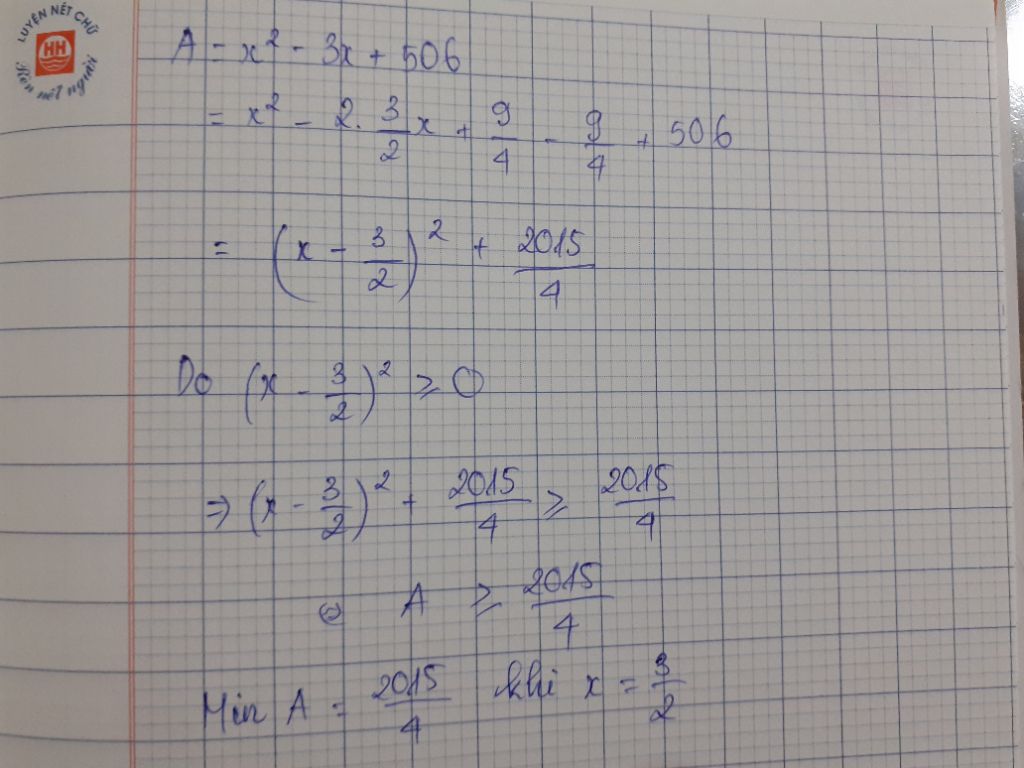 LUYỆN NÉT CHỮ
HH
Rèn nết người
A = x² - 3x + 506
= x² - 2. 3/2 x + 9/4 - 9/4 + 506
= (x - 3/2)² + 2015/4
Do (x - 3/2)² ≥ 0
⇒ (x - 3/2)² + 2015/4 ≥ 2015/4
⇔ A ≥ 2015/4
Min A = 2015/4 khi x = 3/2